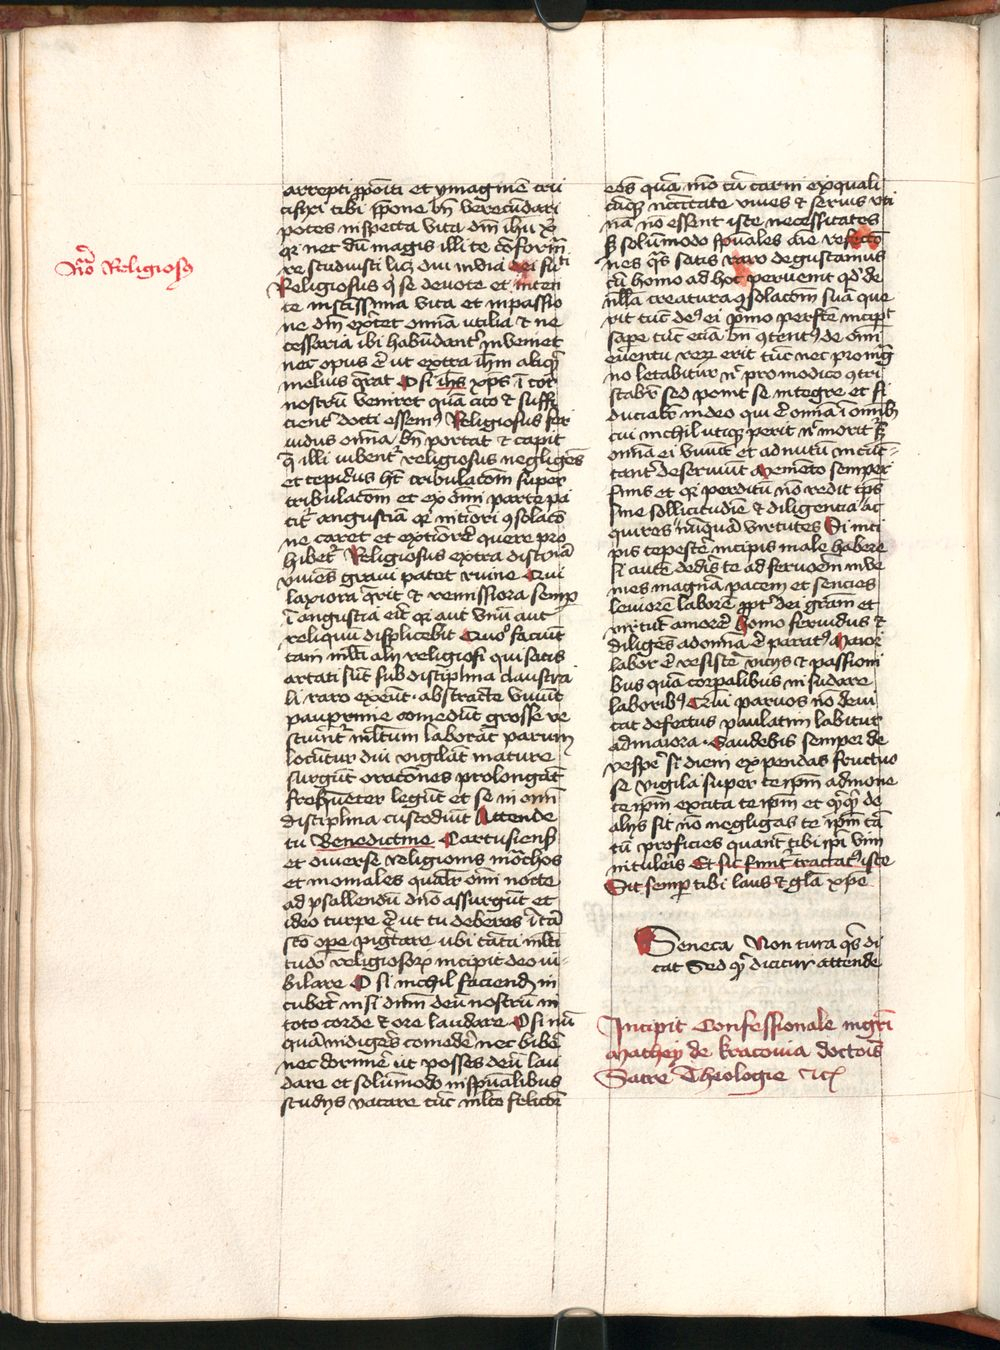 No Religiosus
arrepti ppoiti et ymagine cru
cifixi tibi ppone bn verecundari
potes inspecta vita dni ihu xi
qr nec dum magis illi te coform
re studuisti licz diu in via dei fuisti
Religiosus q se devote et inten
te in sctissima vita et in passio
ne dni exercet omnia utilia & ne
cessaria ibi habundant inveniet
nec opus e ut extra ihm aliqd
melius querat O si ihs xps i cor
nostru veniret qua cito & suffi
cient docti essem9 Religiosus fer
vidus omnia bn portat & capit
q illi iubent religiosus negliges
et tepidus ht tribulacom super
tribulacom et ex omi parte pa
cit angustia qr interiori gsolaco
ne caret et exteriore querere pro
hibet Religiosus extra disciplina
vives gravi patet ruine Qui
laxiora querit & remissiora semp
i angustia erit qr aut unu aut
reliquum displicebit Quo faciut
tam mlti alij religiosi qui satis
artati sut sub disciplina claustra
li raro exeut abstracte vivut
pauprime comedut grosse ve
stiunt mltum laborat parum
locutur diu vigilat mature
surgut oracones prolongat
frequeter legut et se in omi
disciplina custodiut Attende
tu Benedictine Cartusiens
et diverse religionis mochos
et moniales qualr omi nocte
ad psallendu dno assurgut et
ideo turpe e ut tu deberes i ta
sco ope pigritare ubi tata mlti
tudo religiosor incipit deo iu
bilare O si nichil faciend in
cuberet nisi dnm deu nostrum in
toto corde & ore laudare O si nu
qua indigeres comede nec bibe
nec dormire ut posses deu lau
dare et solumodo in spualibus
studijs vacare tuc mlto felicior
ees qua mo cu carni ex quali
cuq necitate vives & servis uti
na no essent iste necessitates
sz solumodo spuales aie refecco
nes qs satis raro degustamus
cu homo ad hoc pervenit qd de
nulla creatura gsolacom sua que
rit tuc de9 ei primo perfte incipit
sape tuc etia bn gtent9 de omi
eventu reru erit tuc nec pro mag
no letabitur nec pro modico gtri
stabr sed ponit se integre et fi
ducialr in deo qui e omnia i omib
cui nichil utiqz perit nec morit sz
omnia ei vivut et ad nutu incuc
tant deserviut Memeto semper
finis et qr perditu no redit tps
sine sollicitudie & diligencia ac
quires nuqua virtutes Si inci
pis tepescere incipis male habere
si aute dederis te ad fervore inve
nies magna pacem et sencies
leviore labore ppt dei gram et
virtut amore Homo fervidus &
diliges ad omia e parat9 Maior
labor e resistere vicijs & passioni
bus qua corpalibus insudare
laborib9 Qui parvos no devi
tat defectus paulatim labitur
ad maiora Gaudebis semper de
vespere si diem expendas fructuo
se vigila super te ipm admone
te ipm excita te ipm et qcqd de
alijs sit no negligas te ipm ta
tu proficies quant tibi ipi vim
intuleris Et sic finit tractat9 iste
Sit semp tibi laus & gla xpe
Seneca Non cura qs di
cat Sed qd dicitur attende
Incipit Confessionale mgri
Mathey de kracovia doctoris
Sacre Theologie etc